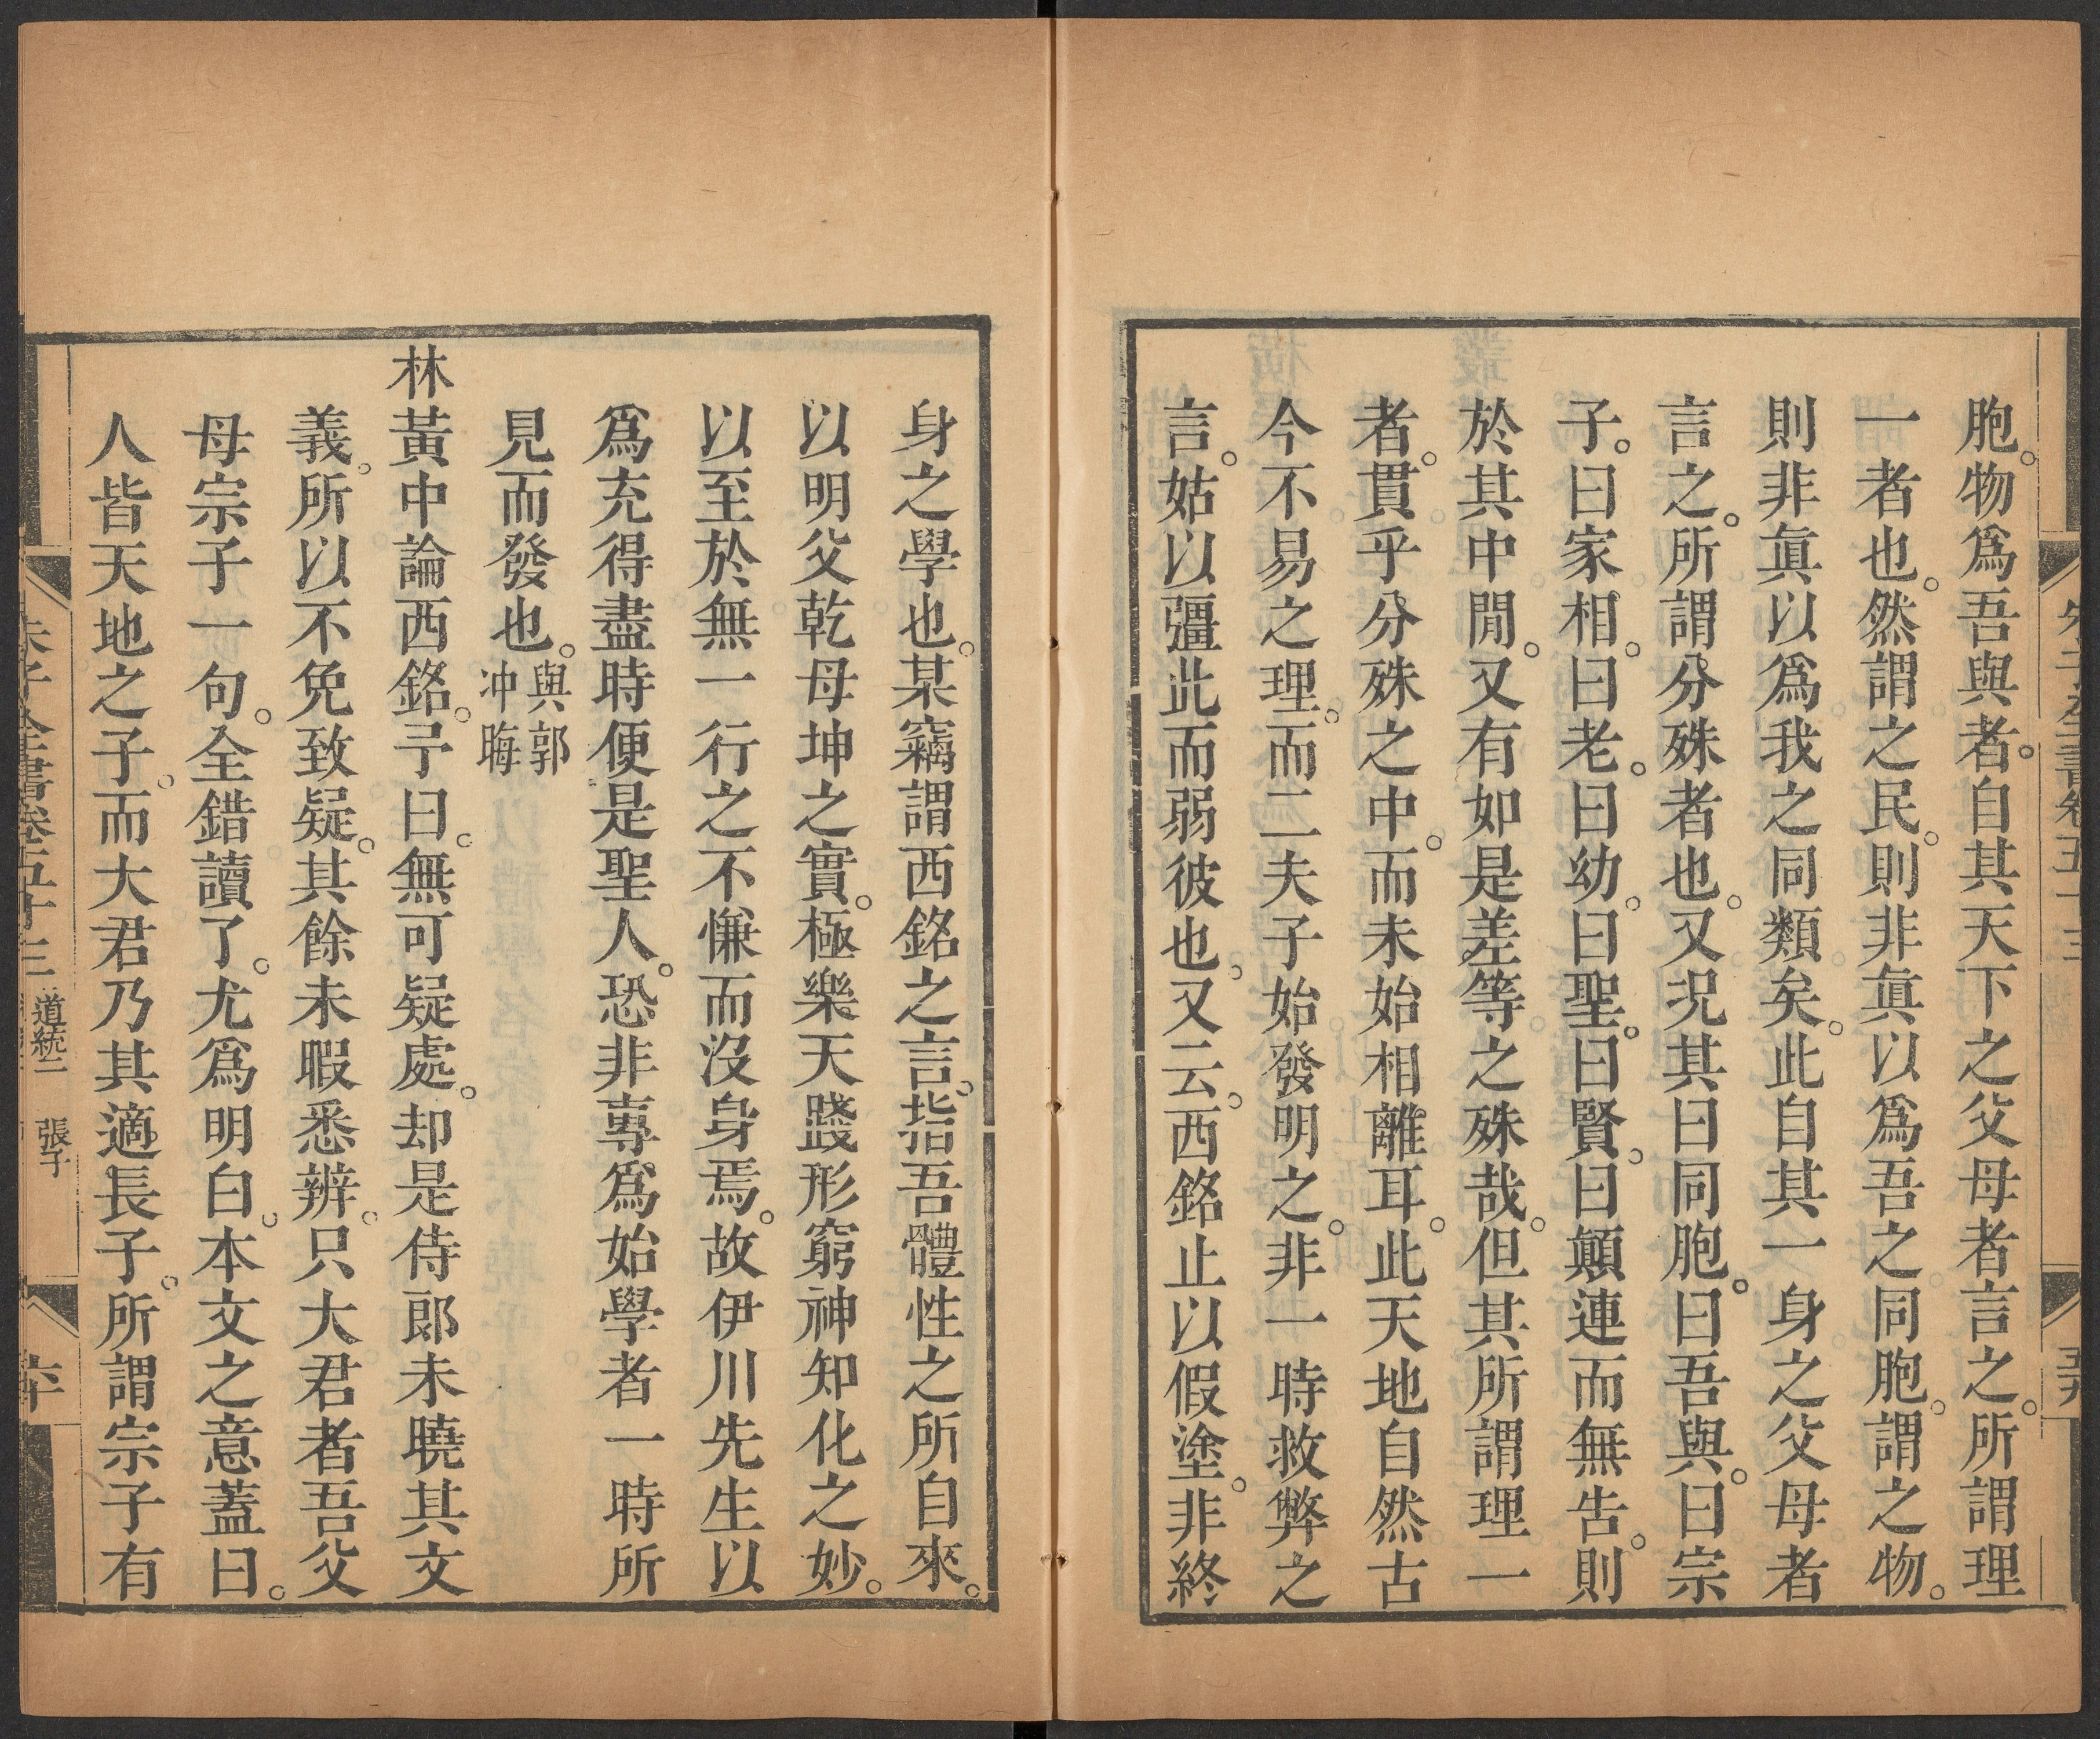 胞。物爲吾與者。自其天下之父母者言之。所謂理
一者也。然謂之民。則非眞以爲吾之同胞。謂之物。
則非眞以爲我之同類矣。此自其一身之父母者
言之。所謂分殊者也。又況其曰同胞。曰吾與。曰宗
子。曰家相。曰老。曰幼。曰聖。曰賢。曰顛連而無告。則
於其中閒。又有如是差等之殊哉。但其所謂理一
者。貫乎分殊之中。而未始相離耳。此天地自然古
今不易之理。而二夫子始發明之。非一時救弊之
言。姑以彊此而弱彼也。又云。西銘止以假塗。非終
身之學也。某竊謂西銘之言。指吾體性之所自來。
以明父乾母坤之實。極樂天踐形窮神知化之妙。
以至於無一行之不慊而沒身焉。故伊川先生以
爲充得盡時便是聖人。恐非專爲始學者一時所
見而發也。與郭冲晦
林黃中論西銘。予曰。無可疑處。却是侍郎未曉其文
義。所以不免致疑。其餘未暇悉辨。只大君者吾父
母宗子一句。全錯讀了。尤爲明白。本文之意蓋曰。
人皆天地之子。而大君乃其適長子。所謂宗子有
朱子全書卷五十三 道統二 張子